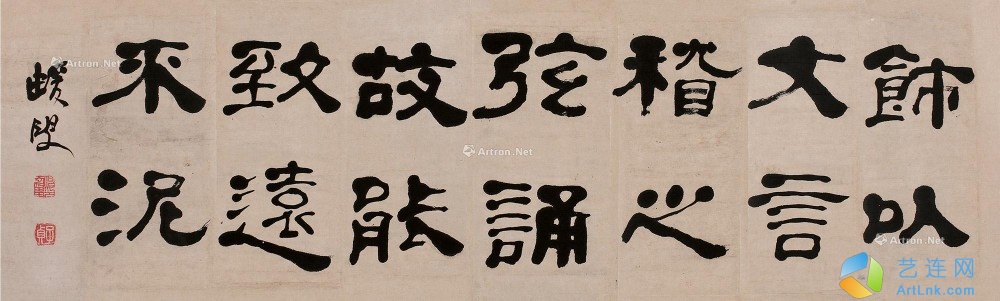 飾以
文言
稽之
弦誦
故能
致遠
不泥
蝯叟
子貞
Artron.Net
Artron.Net
Artron.Net
Artron.Net
艺连网
ArtLnk.com